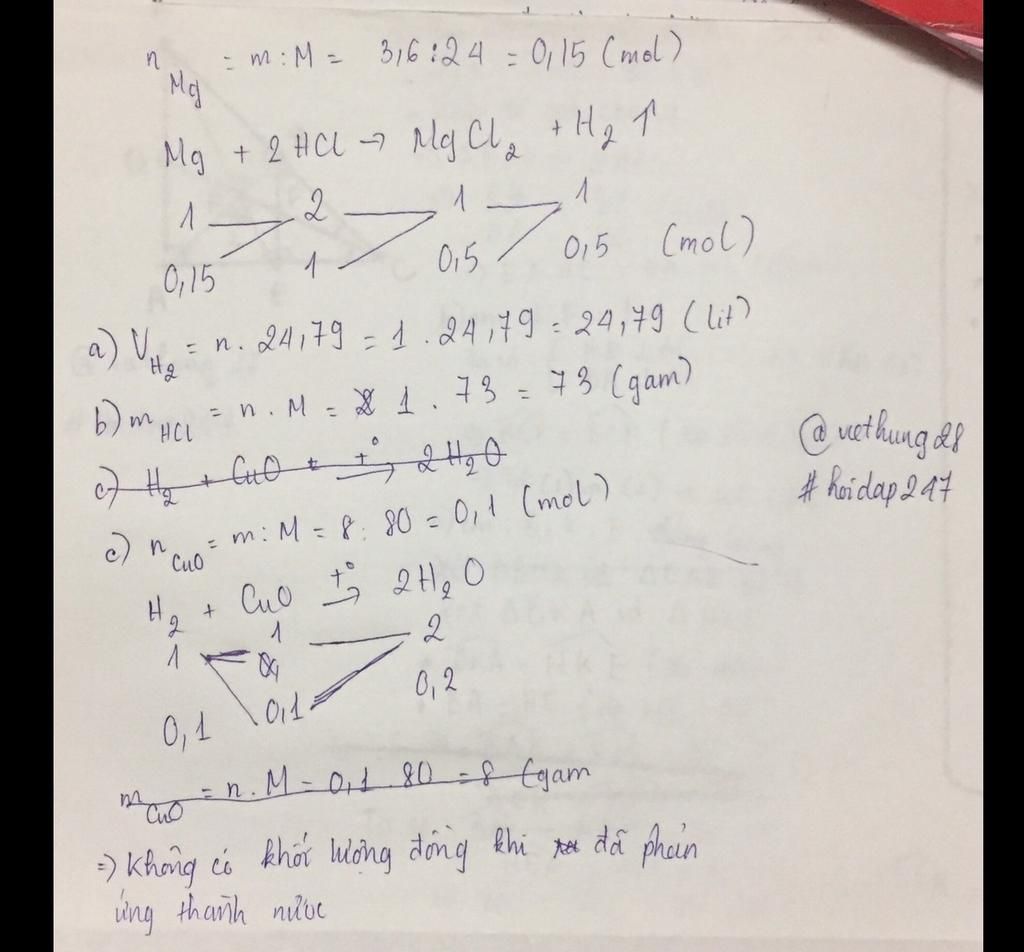 n Mg = m : M = 3,6 : 24 = 0,15 (mol)
Mg + 2 HCl → MgCl2 + H2 ↑
1 2 1 1
0,15 1 0,5 0,5 (mol)
a) V H2 = n. 24,79 = 1 . 24,79 = 24,79 (lit)
b) m HCl = n . M = 1 . 73 = 73 (gam)
@viethung28
c) H2 + CuO t° → 2H2O
# hoidap247
c) n CuO = m : M = 8 : 80 = 0,1 (mol)
H2 + CuO t° → 2H2O
1 1 2
0,1 0,1 0,2
m CuO = n. M = 0,1 . 80 = 8 (gam
=) Không có khối lượng đồng khi đã phản
ứng thành nước